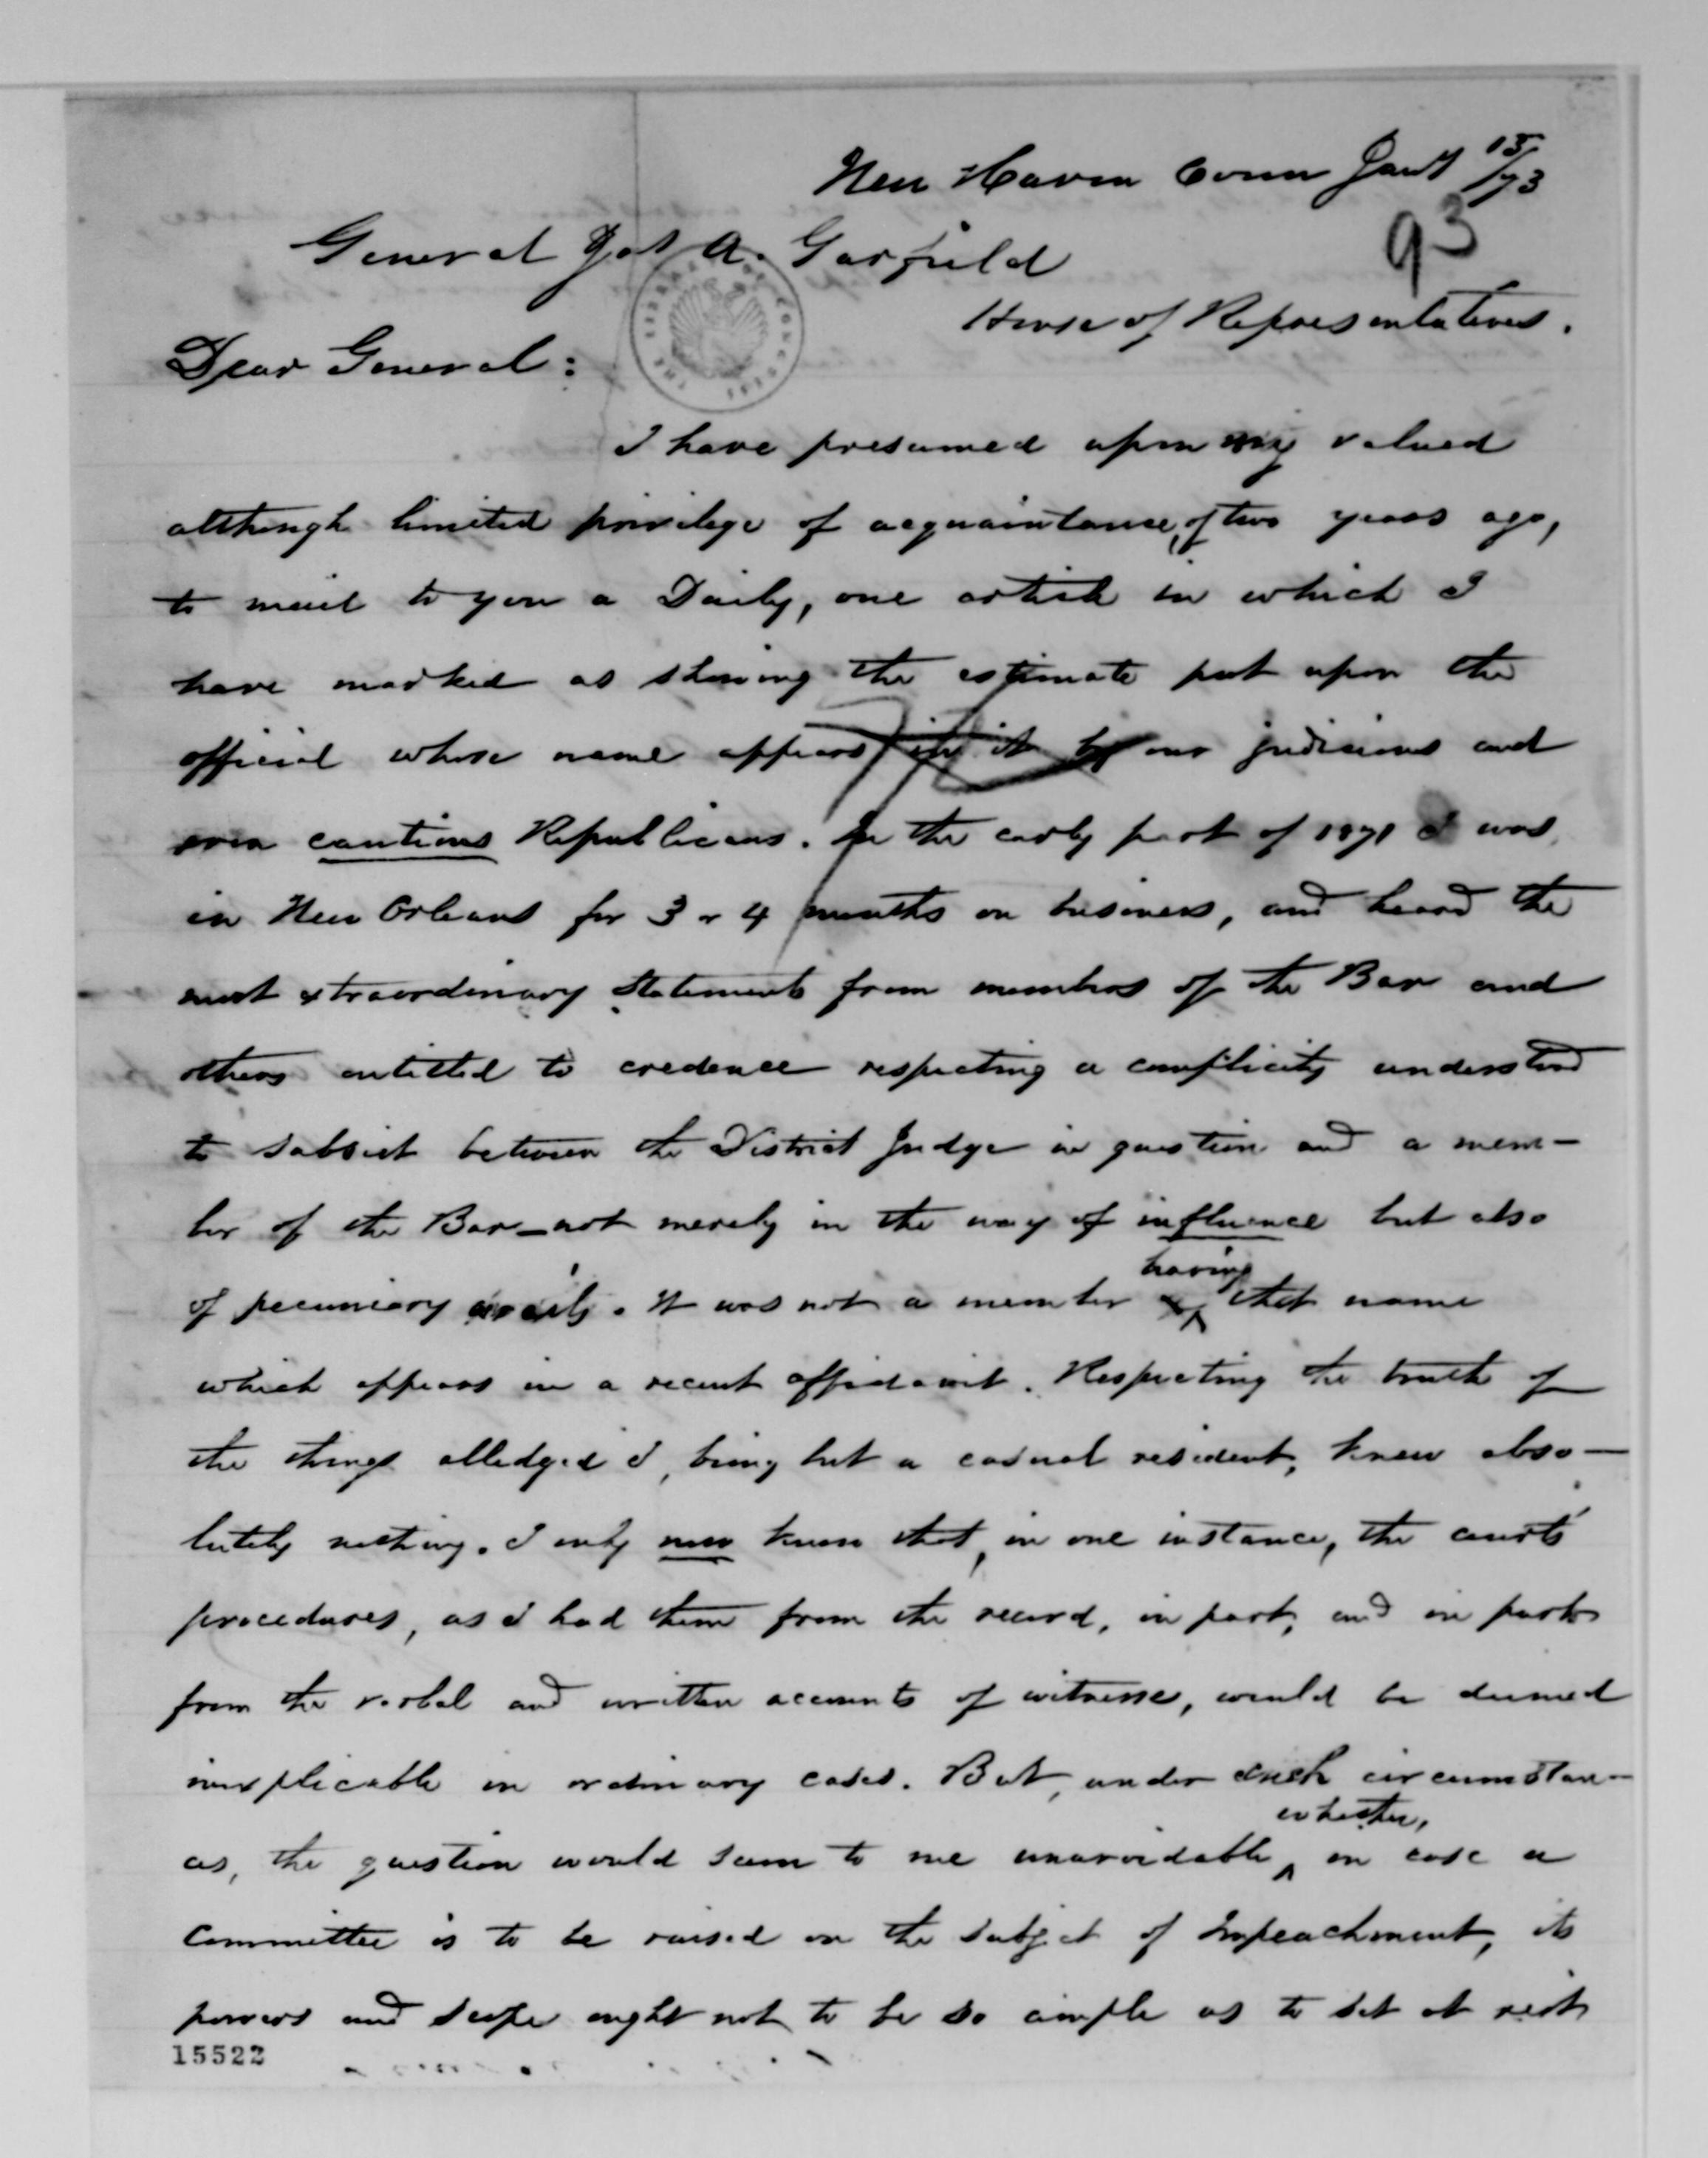 New Haven Conn Jany 15/73
93
General Jas A. Garfield
House of Representatives.
Dear General:
I have presumed upon my valued
although limited privilege of acquaintance, of two years ago,
to mail to you a Daily, one article in which I
have marked as showing the estimate put upon the
official whose name appears in it by our judicious and
even cautious Republicans. In the early part of 1871 I was
in New Orleans for 3 or 4 months on business, and heard the
most extraordinary statements from members of the Bar and
others entitled to credence respecting a complicity understood
to subsist between the District Judge in question and a mem-
ber of the Bar - not merely in the way of influence but also
of pecuniary avails. It was not a member having that name
which appears in a recent affidavit. Respecting the truth of
the things alledged I, being but a casual resident, knew abso-
lutely nothing. I only now know that, in one instance, the court's
procedures, as I had them from the record, in part, and in part
from the verbal and written accounts of witnesses, would be deemed
inexplicable in ordinary cases. But, under such circumstan-
ces, the question would seem to me unavoidable whether, in case a
Committee is to be raised on the subject of Impeachment, its
powers and scope ought not to be so ample as to set at rest
15522